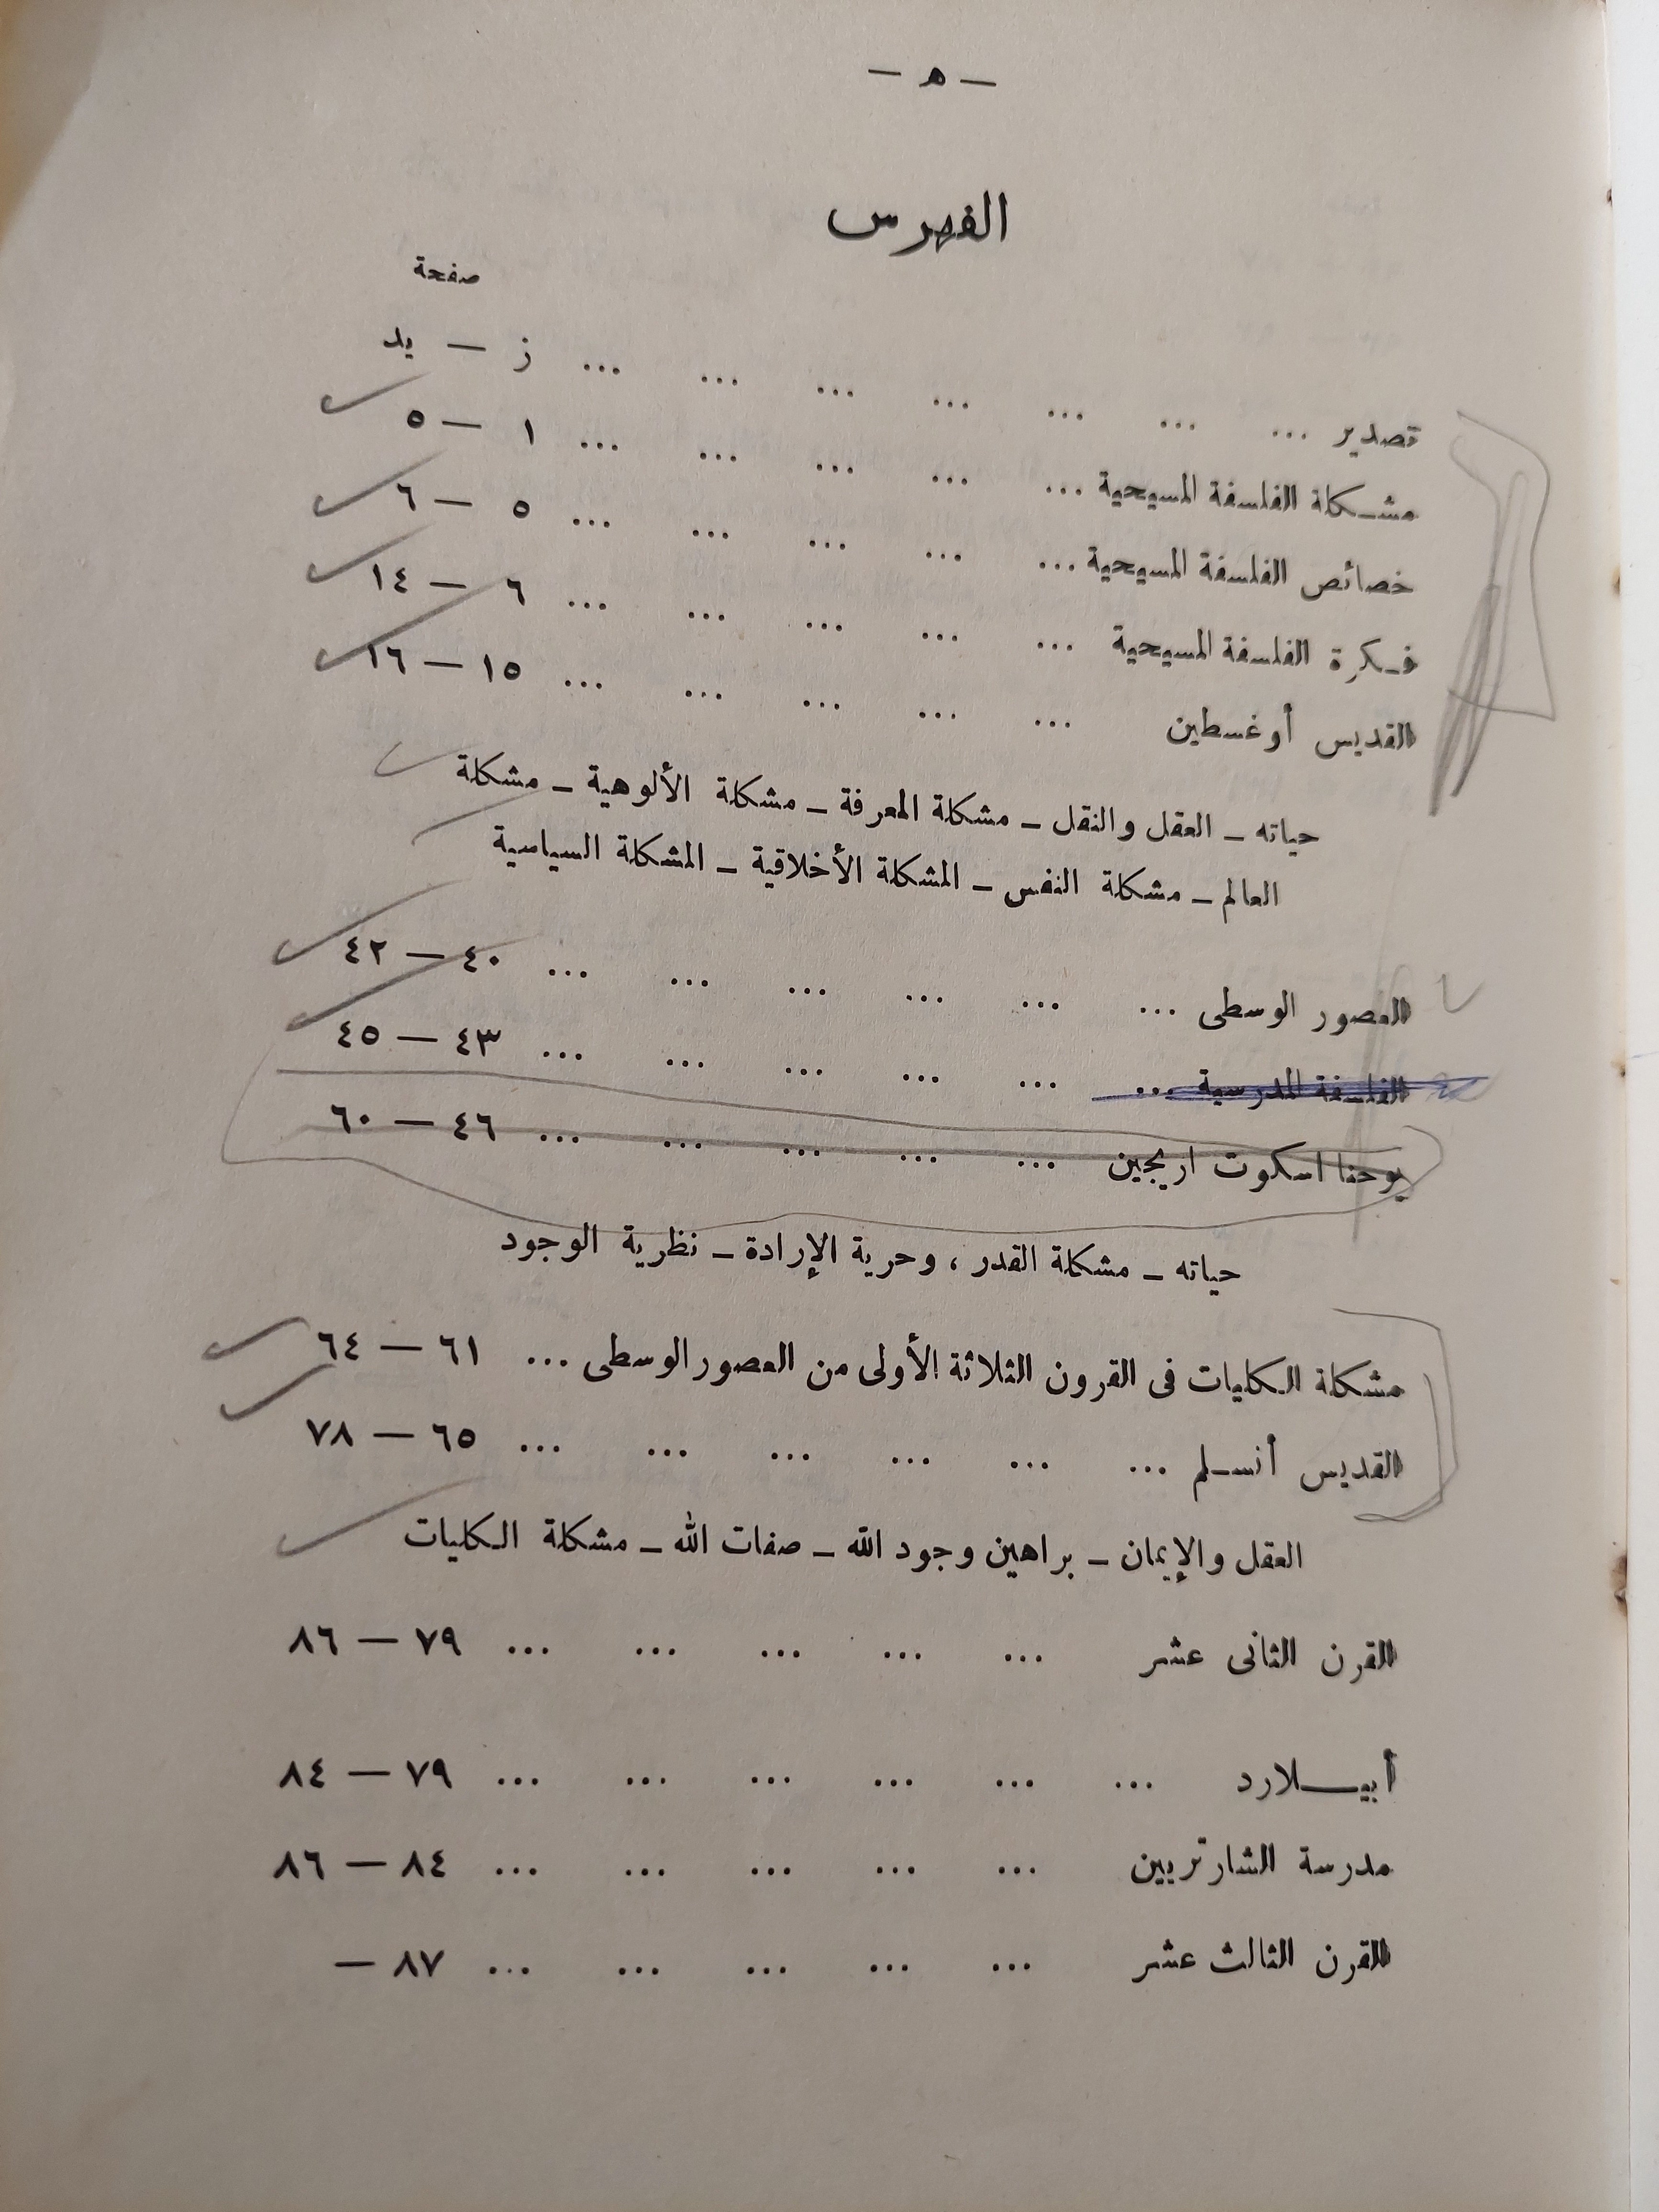 — ه —
الفهرس
صفحة
تصدير ... ... ... ... ... ... ... ز — يد
مشكلة الفلسفة المسيحية ... ... ... ... ... ١ — ٥
خصائص الفلسفة المسيحية ... ... ... ... ... ٥ — ٦
فكرة الفلسفة المسيحية ... ... ... ... ... ٦ — ١٤
القديس أوغسطين ... ... ... ... ... ١٥ — ١٦
حياته – العقل والنقل – مشكلة المعرفة – مشكلة الألوهية – مشكلة
العالم – مشكلة النفس – المشكلة الأخلاقية – المشكلة السياسية
العصور الوسطى ... ... ... ... ... ... ٤٠ — ٤٢
الفلسفة المدرسية ... ... ... ... ... ... ٤٣ — ٤٥
يوحنا اسكوت اريجين ... ... ... ... ... ٤٦ — ٦٠
حياته – مشكلة القدر ، وحرية الإرادة – نظرية الوجود
مشكلة الكليات فى القرون الثلاثة الأولى من العصور الوسطى ... ٦١ — ٦٤
القديس أنسلم ... ... ... ... ... ... ٦٥ — ٧٨
العقل والإيمان – براهين وجود الله – صفات الله – مشكلة الكليات
القرن الثانى عشر ... ... ... ... ... ٧٩ — ٨٦
أبيلارد ... ... ... ... ... ... ٧٩ — ٨٤
مدرسة الشارتريين ... ... ... ... ... ٨٤ — ٨٦
القرن الثالث عشر ... ... ... ... ... ٨٧ —